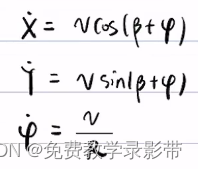 Ẋ = vcos(β+φ)
Ẏ = vsin(β+φ)
φ̇ = v/R
DN @免费教学录影带